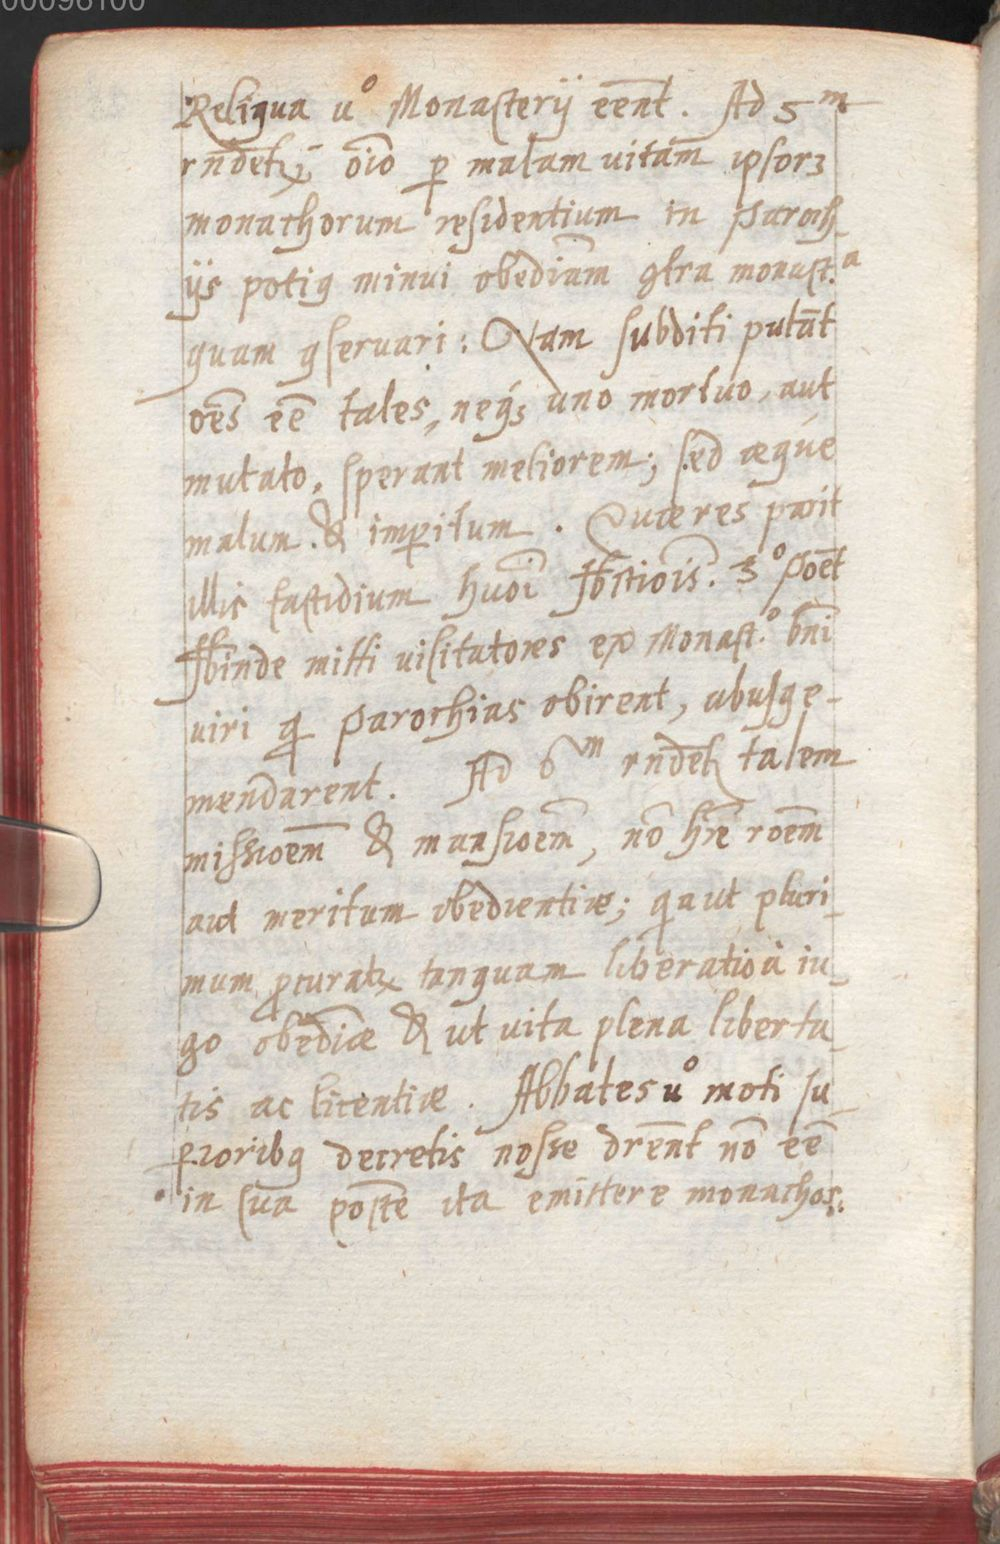 00096100
Reliqua uº Monasterij eēnt. Ad 5m
rñdetr, oīo p malam uitam ipsorꝫ
monachorum residentium in Paroch
ijs potiꝯ minui obediam ꝯtra monast.a
quam ꝯseruari: Nam subditi putāt
oēs eē tales, neqꝫ uno mortuo, aut
mutato, sperant meliorem; sed æque
malum. & imperitum. Quæ res parit
illis fastidium huōi
inde mitti uisitatores ex Monast.º bni
uiri qi Parochias obirent, abusꝯ e-
mendarent. Ad 6m rñdetr talem
missioēm & mansioēm, nō hr̄e roēm
aut meritum obedientiæ; qa ut pluri
mum pcuratr tanquam liberatio à iu
go obediæ & ut uita plena liberta
tis ac licentiæ. Abbates uº moti su
pioribꝯ decretis nosse drēnt nō eē
in sua poste ita emittere monachos: